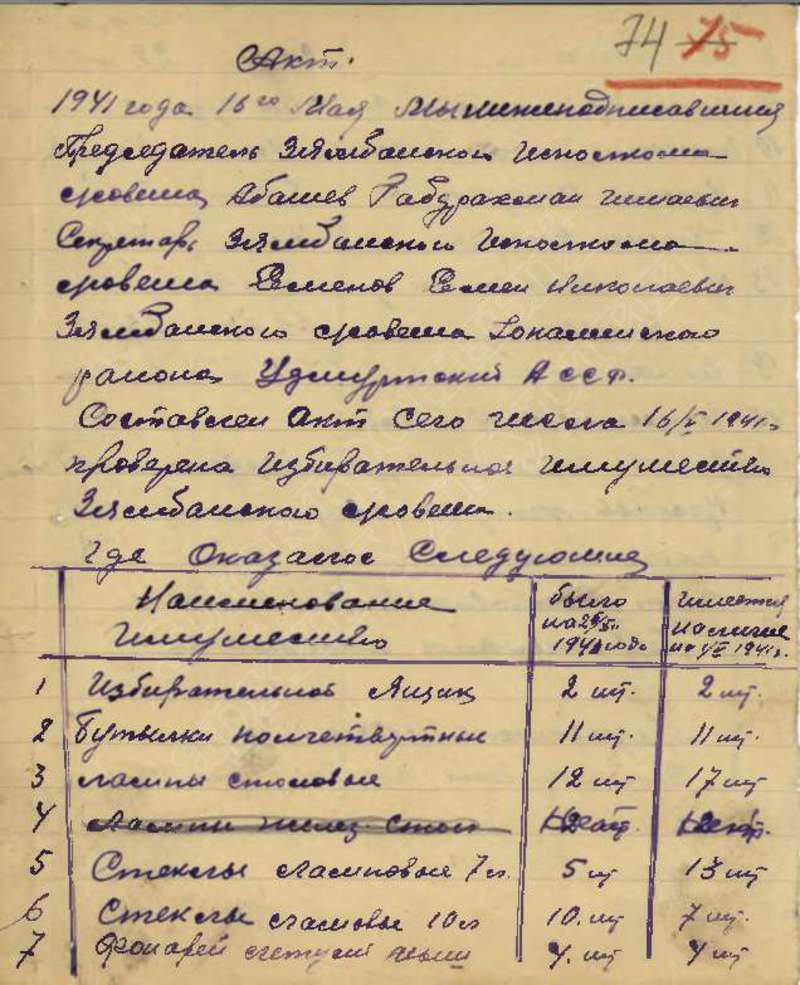 74 75
Акт.
1941 года 16го Мая Мы нижеподписавшиися
Председатель Зямбайского Исполкома
с/совета Абашев Габдрахман
Секретарь Зямбайского Исполкома
с/совета Семенов Семен Николаевич
Зямбайского с/совета
района Удмуртский АССР.
Составлен Акт сего числа 16/V 1941 г.
проверена избирательное имущество
Зямбайского с/совета.
где Оказалос Следующие
Наименование
имущество
было
на 1941 года
имеется
наличие
на 1941 г.
1 Избирательной Ящик 2 шт. 2 шт.
2 Бутылки полчетвертные 11 шт. 11 шт.
3 лампы столовые 12 шт 17 шт
4
5 Стеклы ламповые 7 л. 5 шт 13 шт
6 Стеклы ламповые 10 л 10. шт 7 шт.
7 Фонарей летучий мыши 4. шт 4 шт